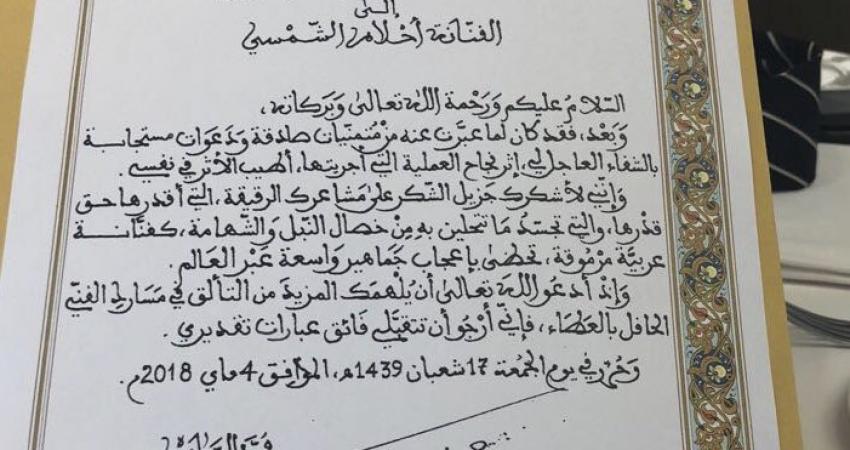 إلى
الفنانة أحلام الشمسي
السلام عليكم ورحمة الله تعالى وبركاته،
وبعد، فقد كان لما عبرت عنه من متمنيات صادقة ودعوات مستجابة
بالشفاء العاجل لي، إثر نجاح العملية التي أجريتها، أطيب الأثر في نفسي.
وإنني لأشكرك جزيل الشكر على مشاعرك الرقيقة، التي أقدرها حق
قدرها، والتي تجسد ما تتحلين به من خصال النبل والشهامة، كفنانة
عربية مرموقة، تحظى بإعجاب جماهير واسعة عبر العالم.
وإذ أدعو الله تعالى أن يلهمك المزيد من التألق في مسارك الفني
الحافل بالعطاء، فإني أرجو أن تتقبلي فائق عبارات تقديري.
وحرر في يوم الجمعة 17 شعبان 1439ه، الموافق 4 ماي 2018م.